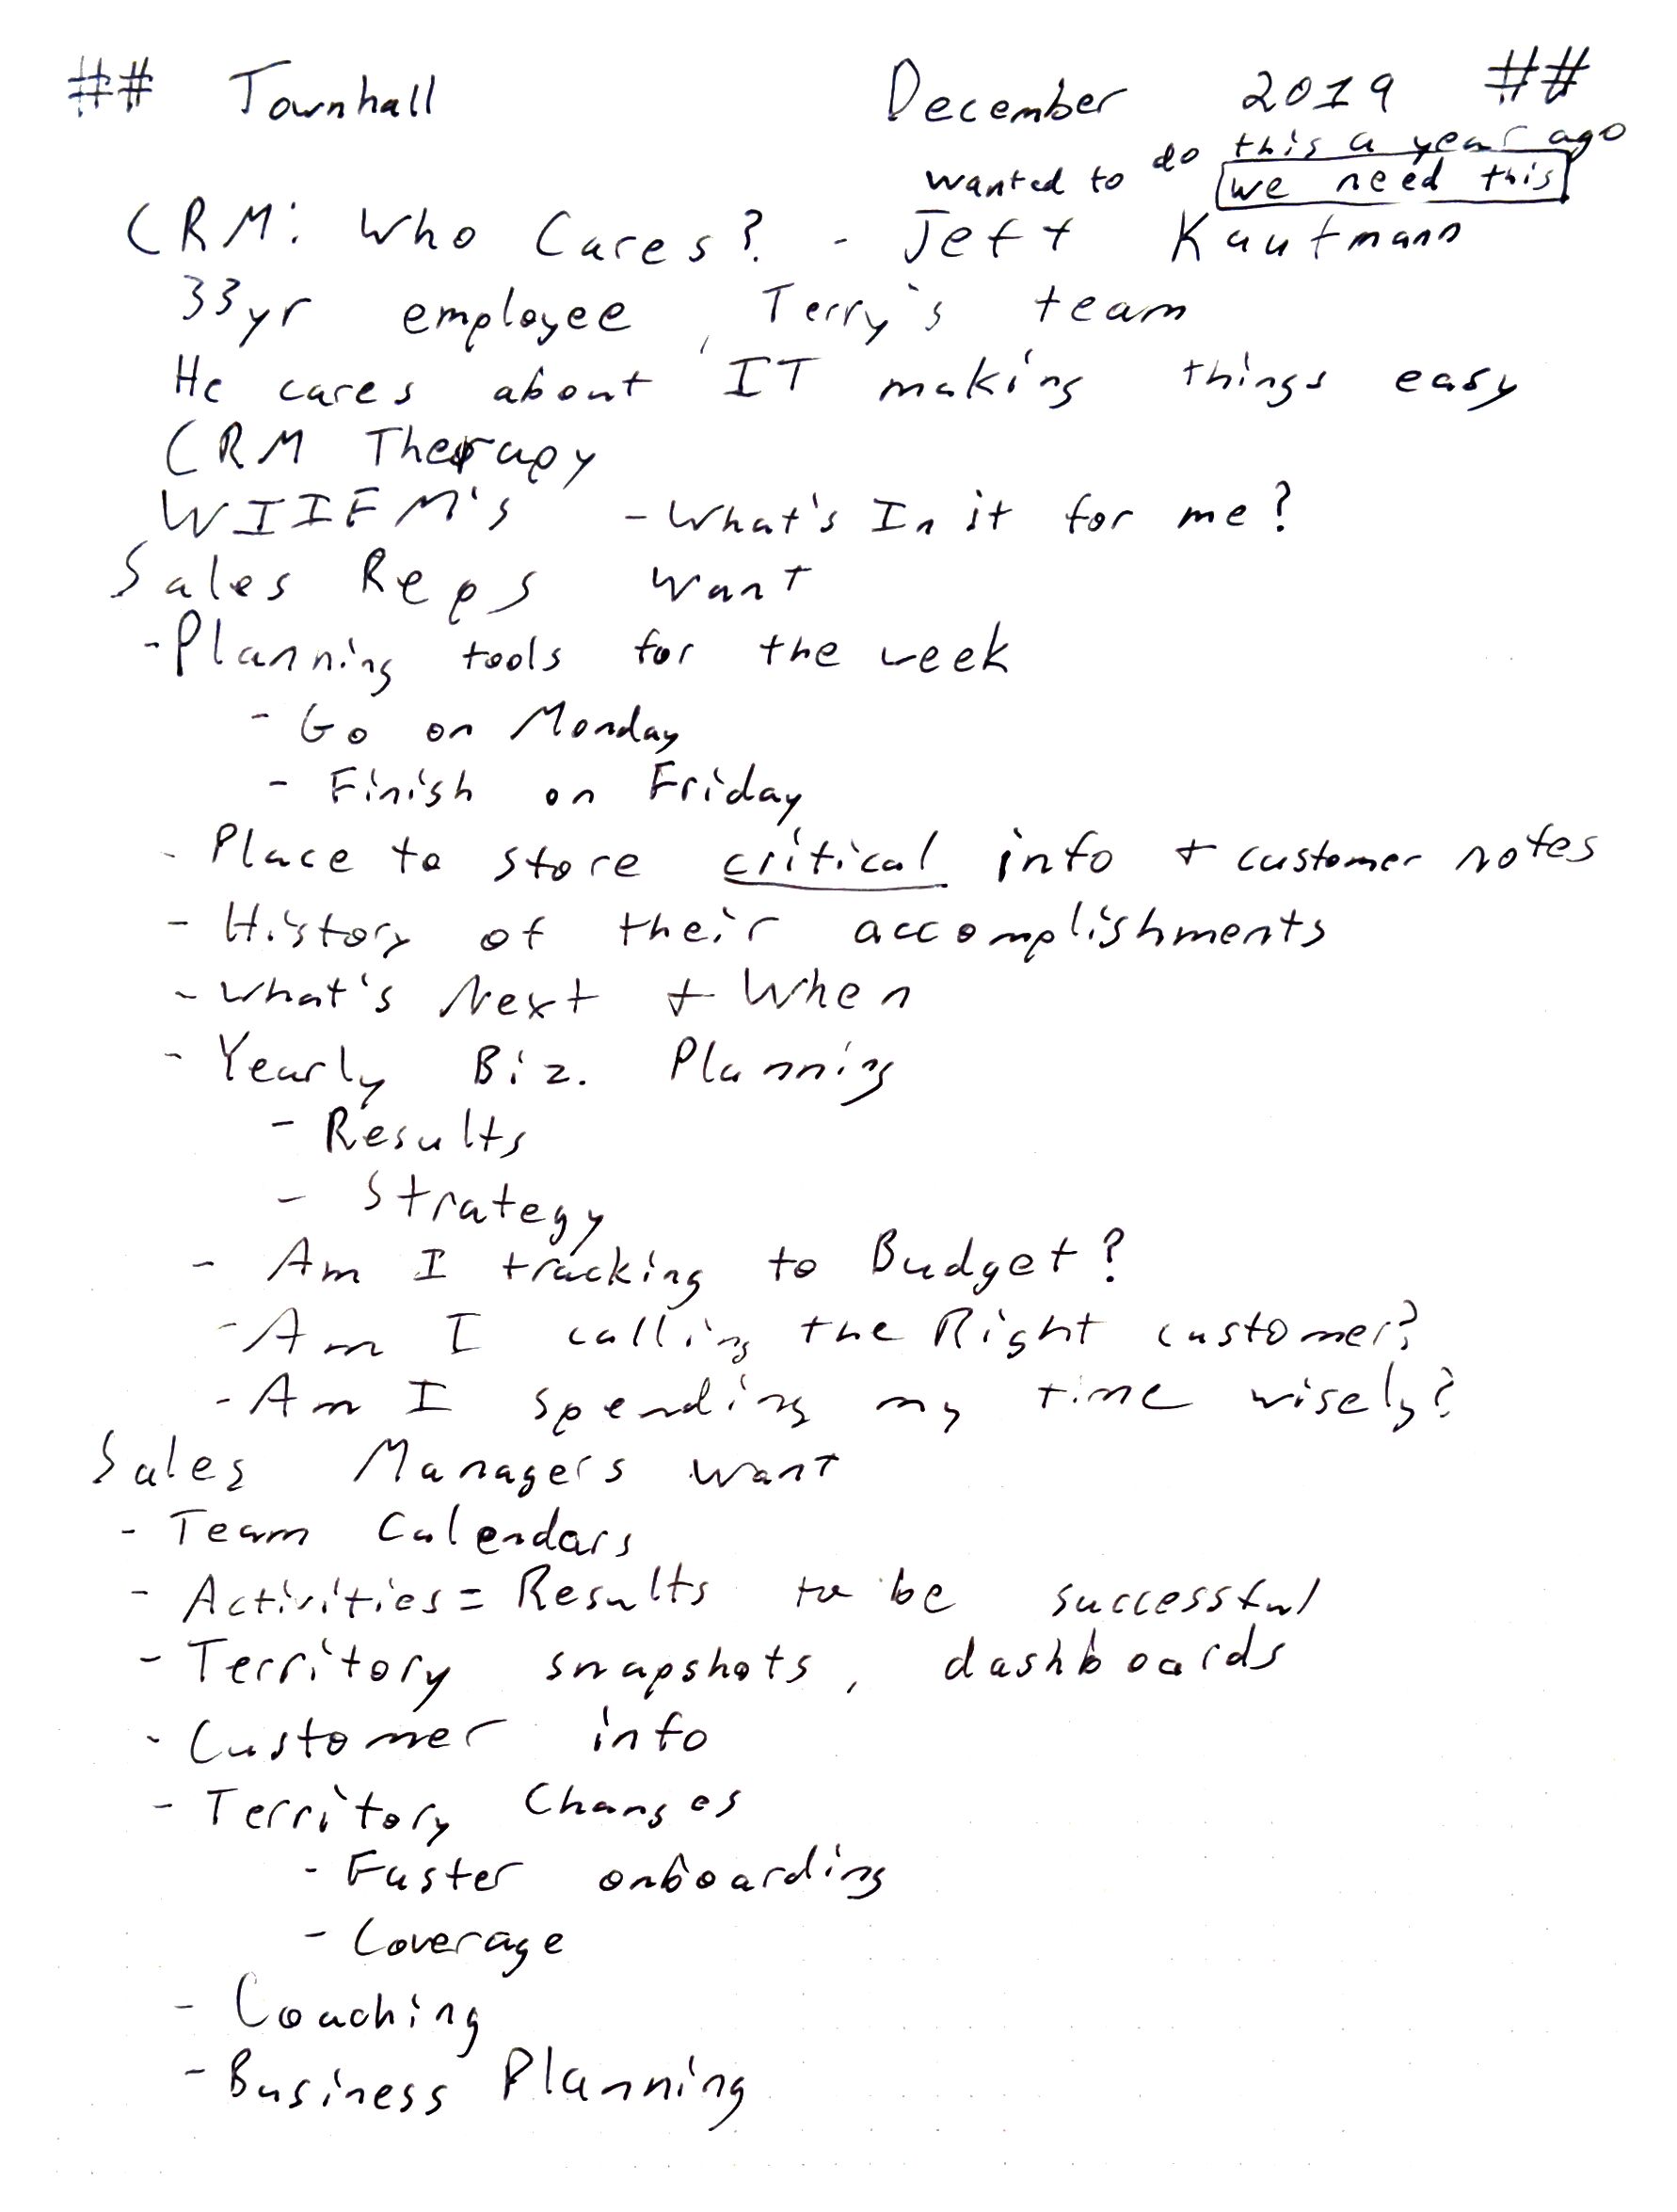 ## Townhall December 2019 ##
wanted to do this a year ago
we need this
CRM: Who Cares? - Jeff Kaufmann
33yr employee, Terry's team
He cares about IT making things easy
CRM Therapy
WIIFM's - What's In it for me?
Sales Reps want
- Planning tools for the week
- Go on Monday
- Finish on Friday
- Place to store critical info + customer notes
- History of their accomplishments
- What's Next + When
- Yearly Biz. Planning
- Results
- Strategy
- Am I tracking to Budget?
- Am I calling the Right customer?
- Am I spending my time wisely?
Sales Managers want
- Team Calendars
- Activities = Results to be successful
- Territory snapshots, dashboards
- Customer info
- Territory Changes
- Faster onboarding
- Coverage
- Coaching
- Business Planning